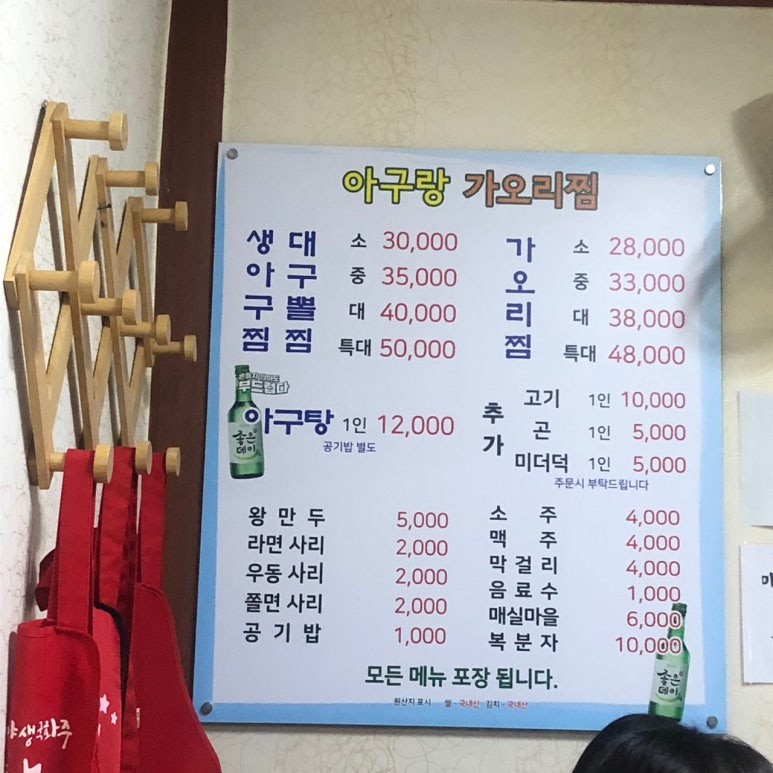 아구랑 가오리찜
생아구찜 대구뽈찜
소 30,000
중 35,000
대 40,000
특대 50,000
가오리찜
소 28,000
중 33,000
대 38,000
특대 48,000
부드럽다
좋은데이
아구탕 1인 12,000
공기밥 별도
추가
고기 1인 10,000
곤 1인 5,000
미더덕 1인 5,000
주문시 부탁드립니다
왕만두 5,000
라면 사리 2,000
우동 사리 2,000
쫄면 사리 2,000
공기밥 1,000
소주 4,000
맥주 4,000
막걸리 4,000
음료수 1,000
매실마을 6,000
복분자 10,000
좋은데이
모든 메뉴 포장 됩니다.
원산지 표시 쌀 - 국내산 김치 - 국내산